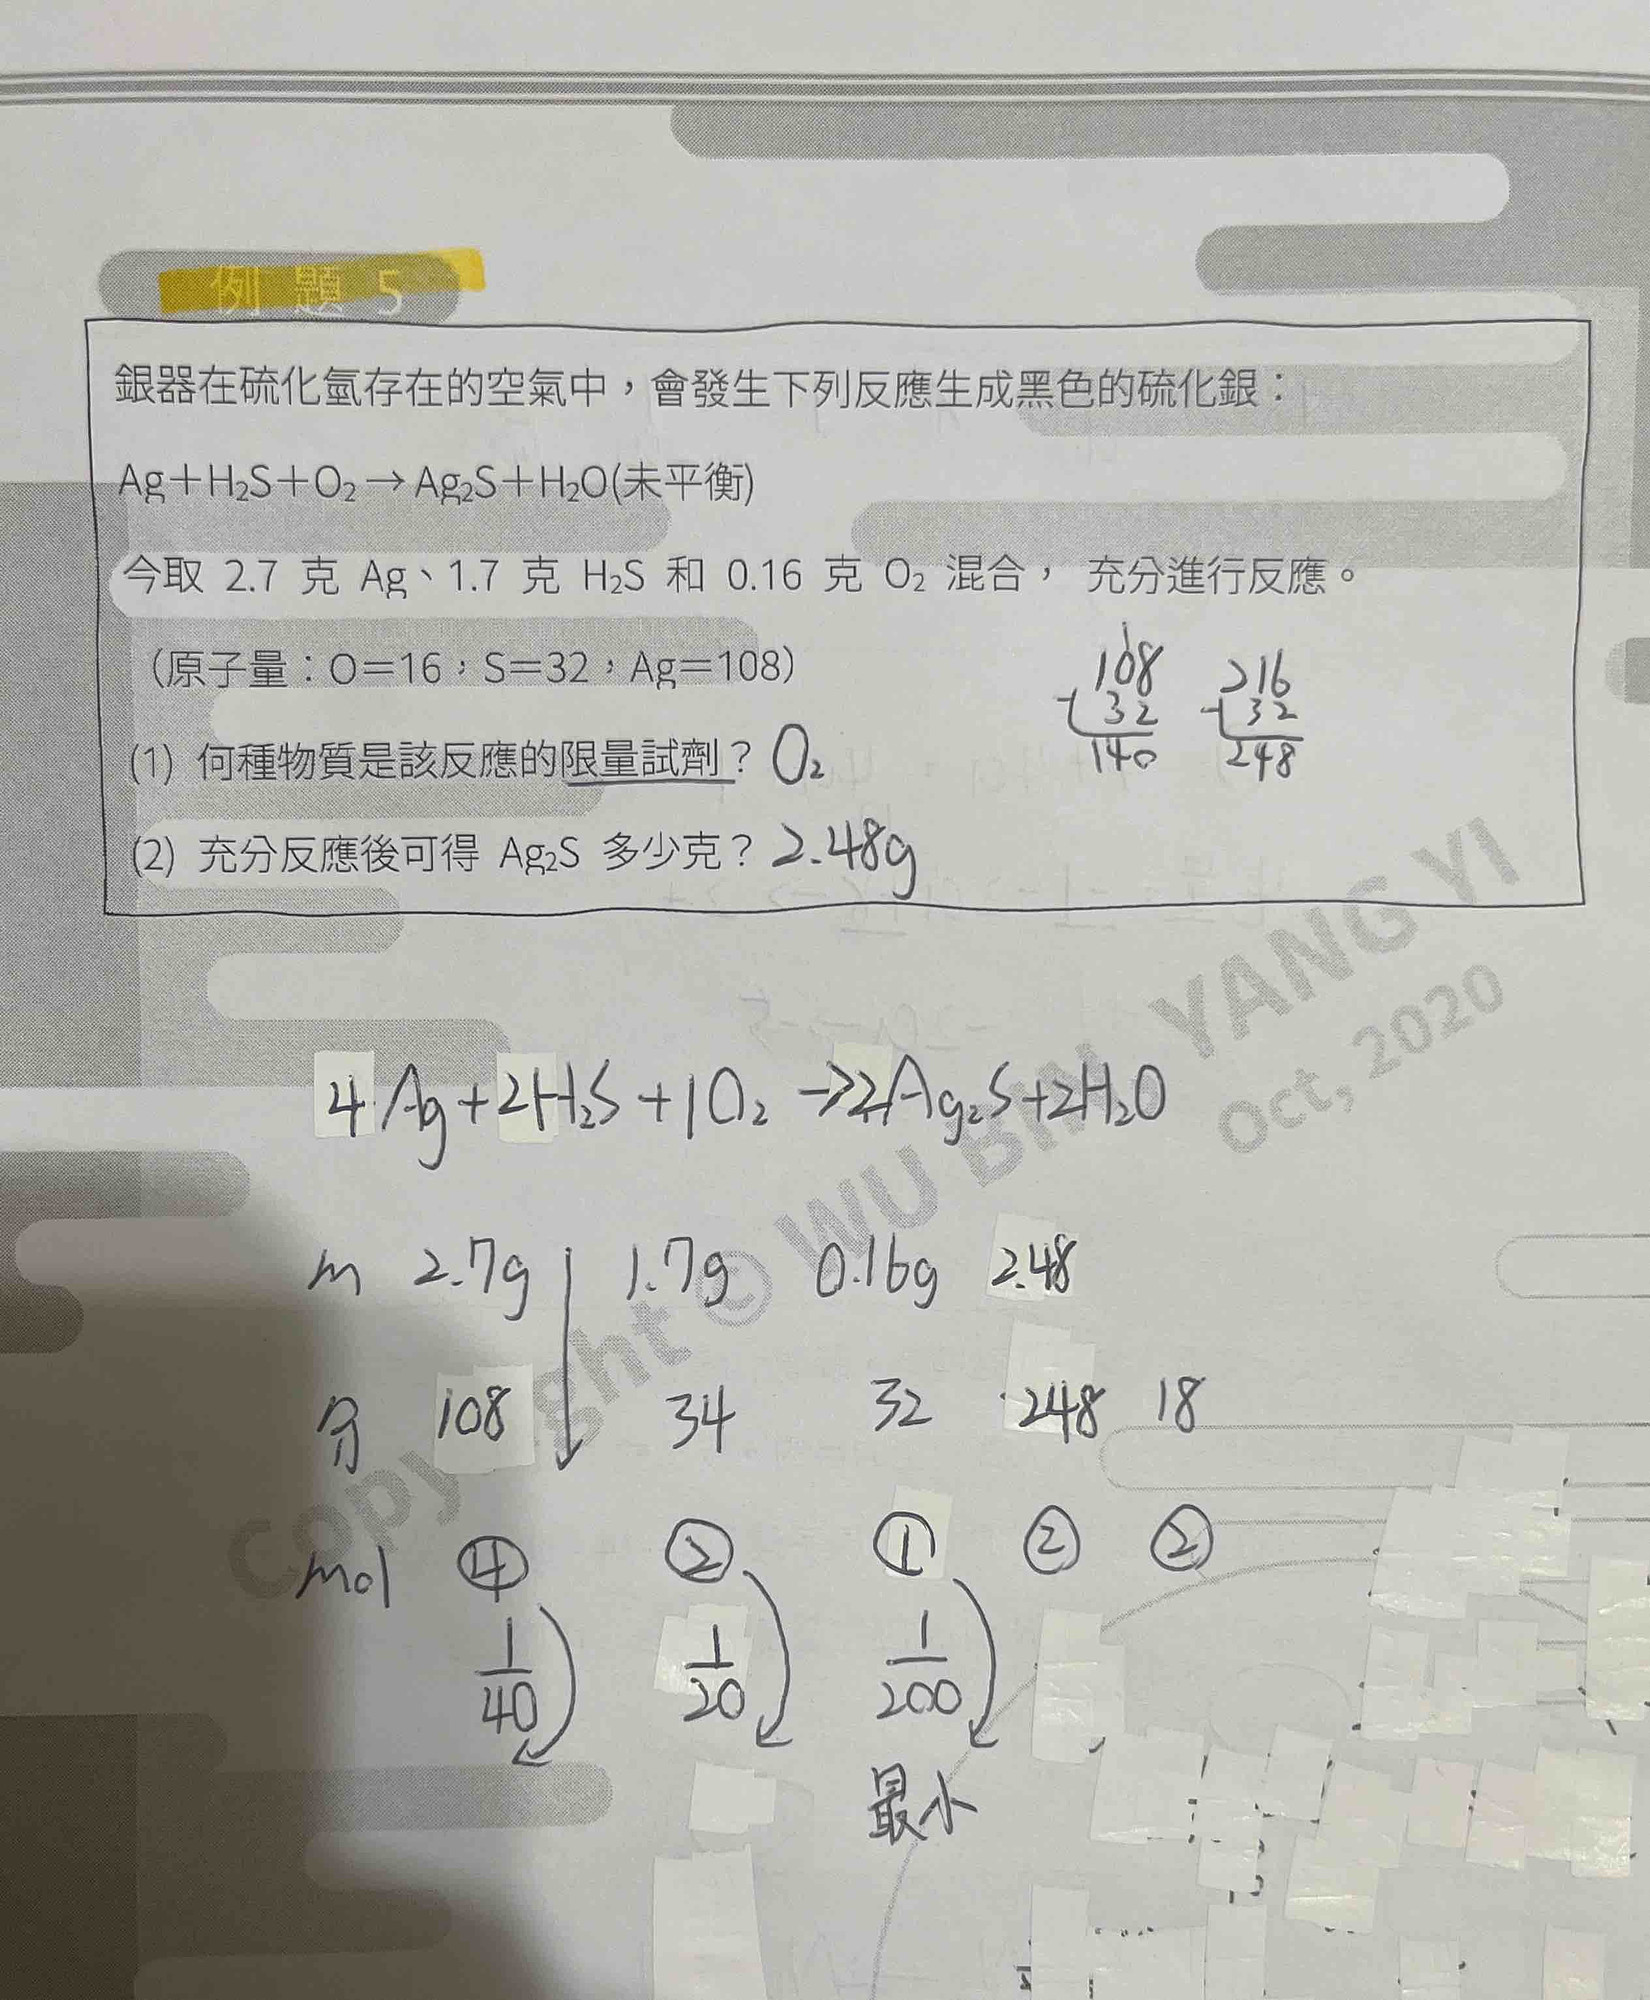 例題5
銀器在硫化氫存在的空氣中，會發生下列反應生成黑色的硫化銀：
Ag＋H₂S＋O₂→Ag₂S＋H₂O(未平衡)
今取 2.7 克 Ag、1.7 克 H₂S 和 0.16 克 O₂ 混合， 充分進行反應。
（原子量：O＝16，S＝32，Ag＝108）
(1) 何種物質是該反應的限量試劑？ O₂
(2) 充分反應後可得 Ag₂S 多少克？ 2.48g
1
108 216
+ 32 + 32
140 248
4Ag+2H₂S+1O₂→2Ag₂S+2H₂O
m 2.7g 1.7g 0.16g 2.48
分 108 34 32 248 18
mol ④ ② ① ② ②
1/40 1/20 1/200
最小
Copyright © WU BIN YANG YI
Oct, 2020